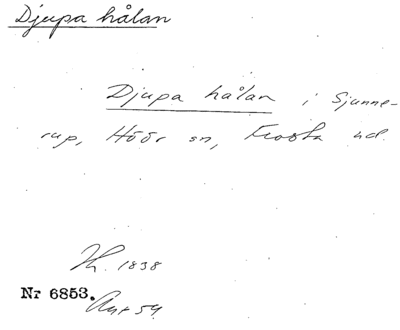 Djupa hålan
Djupa hålan i Sjunne-
rup, Höör sn, Frosta hd.
1838
Nr 6853.